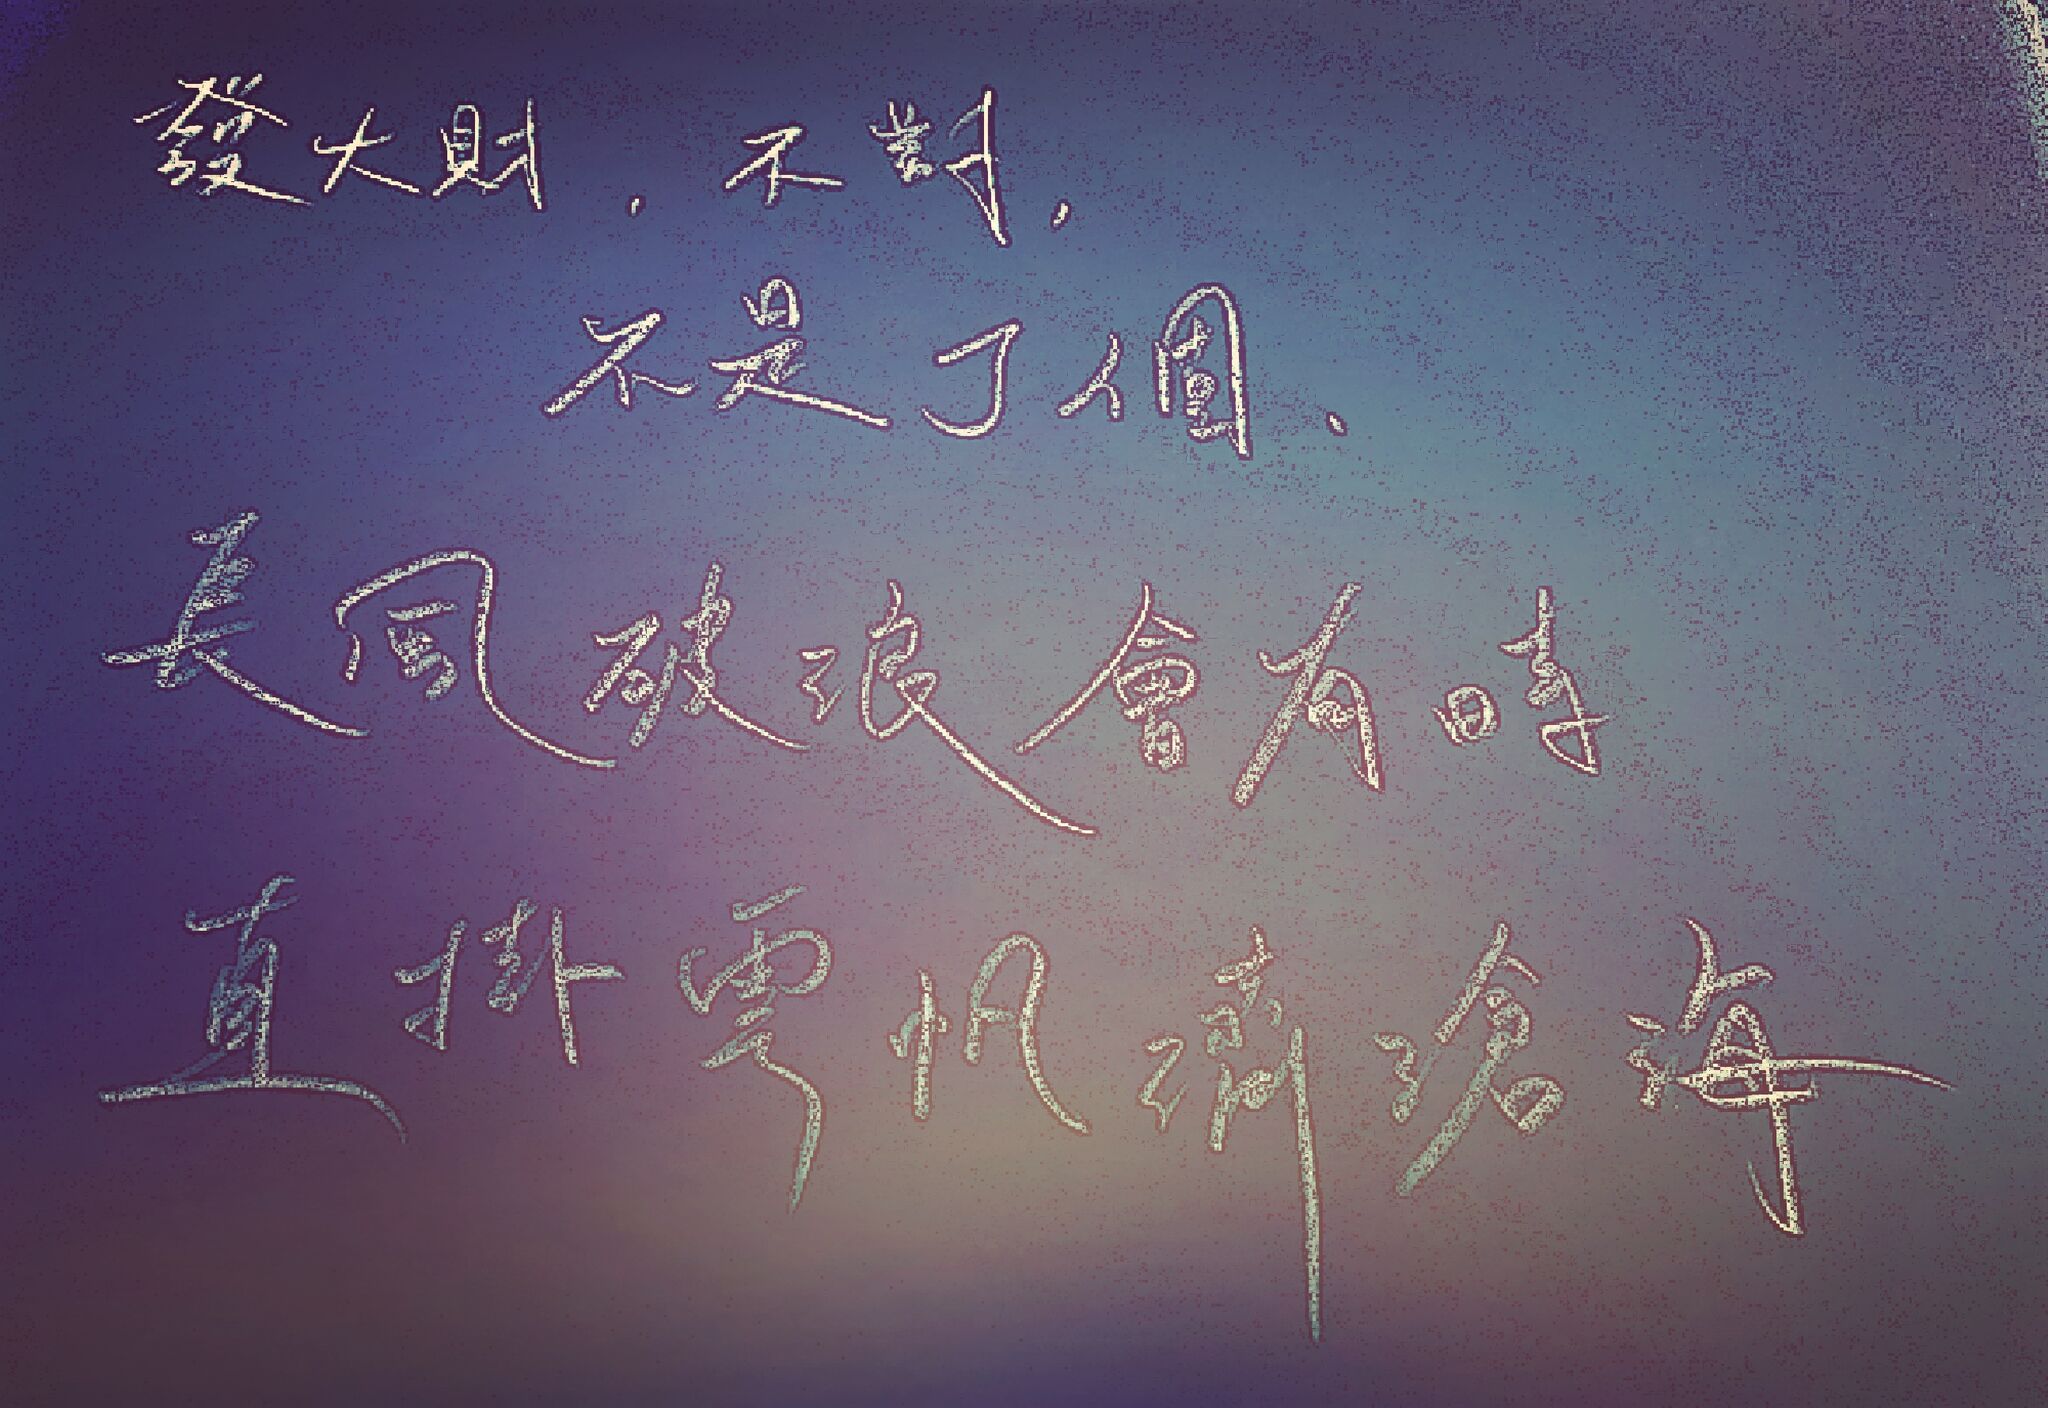 發大財,不對,
不是了個、
長風破浪會有時
直掛雲帆濟滄海